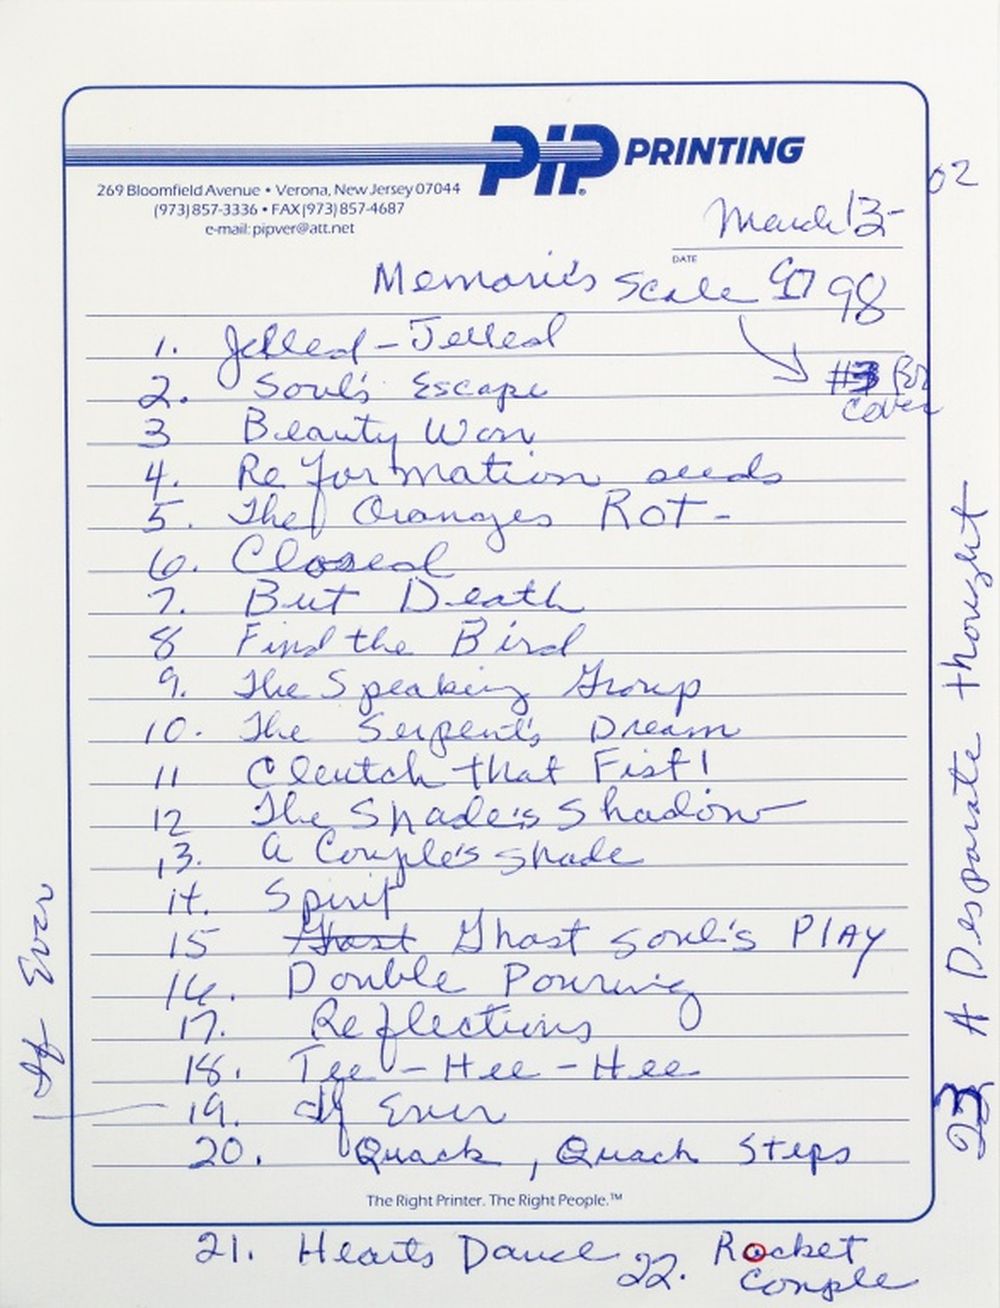 PIP PRINTING
269 Bloomfield Avenue • Verona, New Jersey 07044
(973) 857-3336 • FAX (973) 857-4687
e-mail: pipver@att.net
02
March 13-
DATE
Memorie's Scale 97 98
#3 For
Cover
1. Jelled - Jelled
2. Soul's Escape
3 Beauty Won
4. Reformation seeds
5. The Oranges Rot -
6. Closed
7. But Death
8 Find the Bird
9. The Speaking Group
10. The Serpent's Dream
11 Clutch that Fist!
12 The Spade's Shadow
13. A Couple's Shade
14. Spirit
15 Ghost Ghost Soul's PlAy
16. Double Pouring
17. Reflections
18. Tee - Hee - Hee
19. If Ever
20. Quack, Quack Steps
The Right Printer. The Right People.™
21. Hearts Dance 22. Rocket
Couple
If Ever
23 A Desparate thought